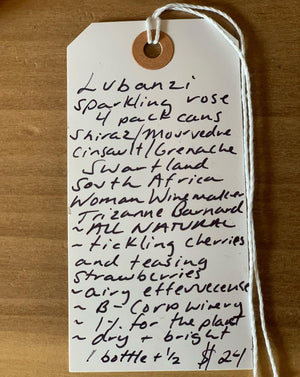 Lubanzi
sparkling rose
4 pack cans
Shiraz/Mourvedre
Cinsault/Grenache
Swartland
South Africa
Woman Winemaker
Trizanne Barnard
~ ALL NATURAL
~ tickling cherries
and teasing
strawberries
~ airy effervescense
~ B-Corp winery
~ 1% for the planet
~ dry + bright
1 bottle + 1/2 $24